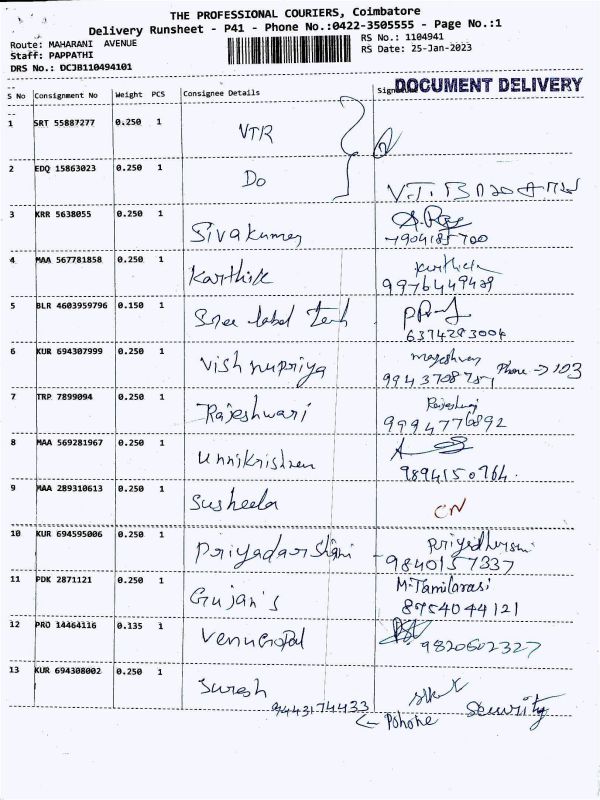 THE PROFESSIONAL COURIERS, Coimbatore
Delivery Runsheet - P41 - Phone No.:0422-3505555 - Page No.:1
Route: MAHARANI AVENUE RS No.: 1104941
Staff: PAPPATHI RS Date: 25-Jan-2023
DRS No.: DCJB110494101
DOCUMENT DELIVERY
S No Consignment No Weight PCS Consignee Details Signature
1 SRT 55887277 0.250 1 VTR
2 EDQ 15863023 0.250 1 Do
3 KRR 5638055 0.250 1 Sivakumar
7904185700
4 MAA 567781858 0.250 1 Karthik Karthick
9976449429
5 BLR 4603959796 0.150 1 Sree label Tech
6374283004
6 KUR 694307999 0.250 1 Vishnupriya Mageshwary
Phone -> 103
7 TRP 7899094 0.250 1 Rajeshwari
9994776892
8 MAA 569281967 0.250 1 Unnikrishnan
9894150764.
9 MAA 289310613 0.250 1 Susheela CN
10 KUR 694595006 0.250 1 Priyadarshini Priyadharsini
9840157337
11 PDK 2871121 0.250 1 Gujan's M.Tamilarasi
8754044121
12 PRO 14464116 0.135 1 Venugopal
9820602327
13 KUR 694308002 0.250 1 Suresh
9443174433 <- Pohone Security